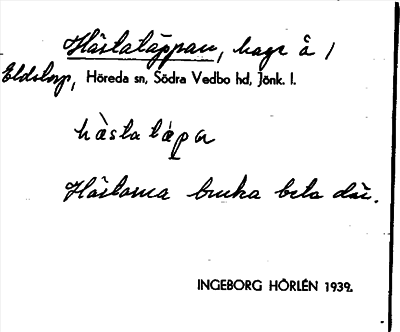 Hästatäppan, hage å 1
Eldstorp, Höreda sn, Södra Vedbo hd, Jönk. l.
hàsta tápa
Hästarna bruka beta där.
INGEBORG HÖRLÉN 1939.